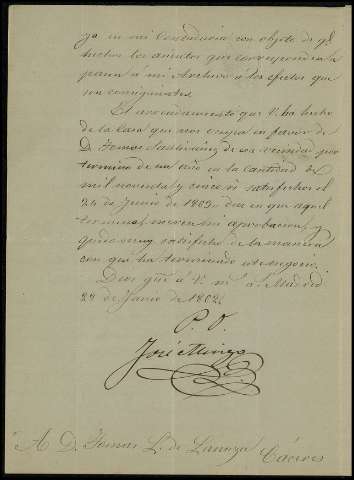 ya en mi Contaduria con objeto de q.e
hechos los asientos que correspondan
pasen a mi Archivo a los efectos que
son consiguientes.
El arrendamiento que V. ha hecho
de la Casa que nos ocupa en favor de
D. Tomas de esa vecindad por
termino de un año en la cantidad de
mil noventa y cinco rs satisfechos el
24 de Junio de 1863, dia en que aquel
termina, merece mi aprobacion, y
quedo muy satisfecho de la manera
con que ha terminado este negocio.
Dios gue á V. ms as Madrid
28 de Junio de 1862.
P. O.
José
A D. Tomas L. de Lanuza Cáceres